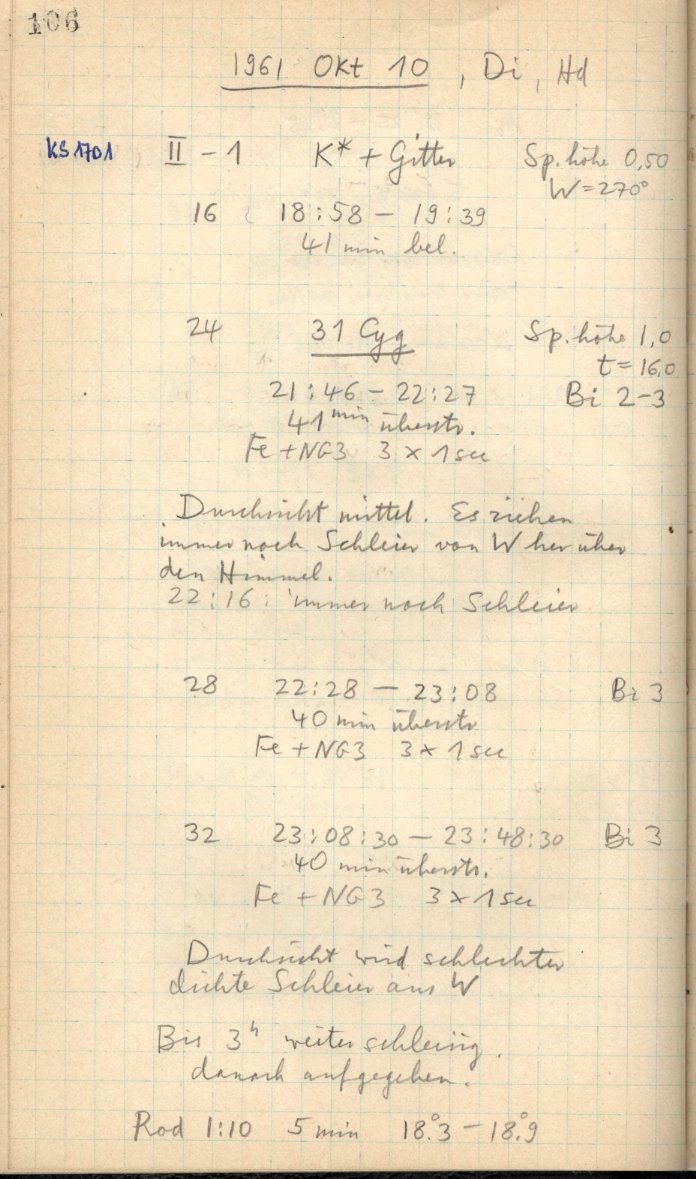 106
1961 Okt 10, Di, Hd
KS 1701 II - 1 K* + Gitter Sp.höhe 0,50
W=270°
16 18:58 - 19:39
41 min bel.
24 31 Cyg Sp.höhe 1,0
t=16,0
21:46 - 22:27 Bi 2-3
41 min überstr.
Fe + NG3 3 x 1 sec
Durchsicht mittel. Es ziehen
immer noch Schleier von W her über
den Himmel.
22:16: immer noch Schleier
28 22:28 - 23:08 Bi 3
40 min überstr.
Fe + NG3 3 x 1 sec
32 23:08:30 - 23:48:30 Bi 3
40 min überstr.
Fe + NG3 3 x 1 sec
Durchsicht wird schlechter
dichte Schleier aus W
Bis 3h weiter schleirig.
danach aufgegeben.
Rod 1:10 5 min 18°.3 - 18°.9